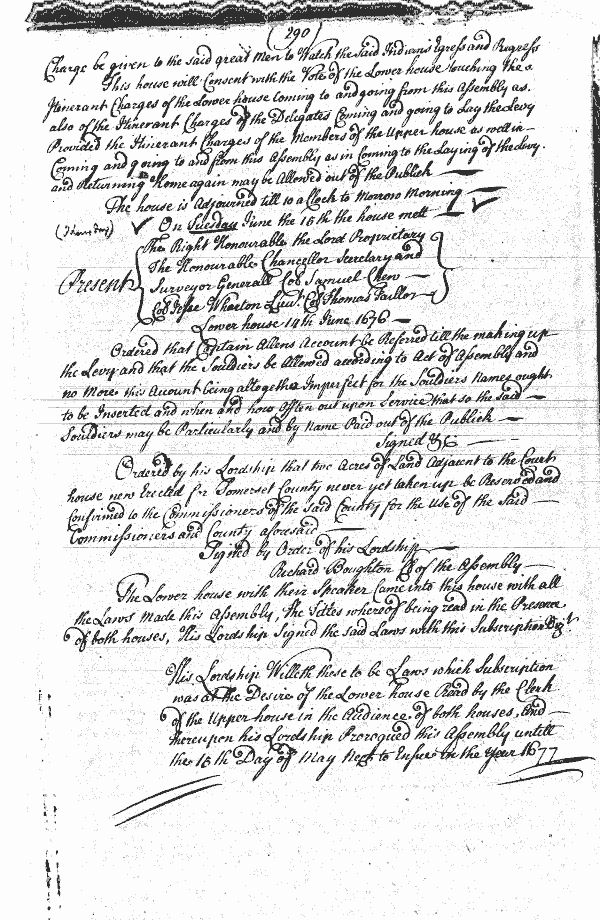 290
Charge be given to the said great Men to Watch the said Indians Egress and Regress
This house will Consent with the Vote of the Lower house touching the
Itinerant Charges of the Lower house coming to and going from this Assembly as
also of the Itinerant Charges of the Delegates Coming and going to Lay the Levy
Provided the Itinerant Charges of the Members of the Upper house as well in
Coming and going to and from this Assembly as in coming to the Laying of the Levy
and Returning home again may be Allowed out of the Publick
The house is Adjourned till 10 a Clock to Morrow Morning
(Thursday) On Tuesday June the 15th the house mett
The Right Honourable the Lord Proprietary
The Honourable Chancellor Secretary and
Present Surveyor Generall Col Samuel Chew
Col Jesse Wharton Lieut. Col Thomas Taillor
Lower house 14th June 1676
Ordered that Captain Allens Account be Referred till the making up
the Levy and that the Souldiers be Allowed according to Act of Assembly and
no More this Acount being altogether Imperfect for the Souldiers Names ought
to be Inserted and when and how Often out upon Service that so the said
Souldiers may be Particularly and by Name Paid out of the Publick
Signed &c
Ordered by his Lordship that two Acres of Land Adjacent to the Court
house new Erected for Somerset County never yet taken up be Reserved and
Confirmed to the Commissioners of the said County for the Use of the Said
Commissioners and County aforesaid
Signed by Order of his Lordship
Richard Boughton Cl of the Assembly
The Lower house with their Speaker Came into this house with all
the Laws Made this Assembly, the Titles whereof being read in the Presence
of both houses, His Lordship Signed the said Laws with this Subscription Vizt
His Lordship Willeth these to be Laws which Subscription
was at the Desire of the Lower house Read by the Clerk
of the Upper house in the Audience of both houses, And
thereupon his Lordship Prorogued this Assembly untill
the 15th Day of May Next to Ensue in the Year 1677